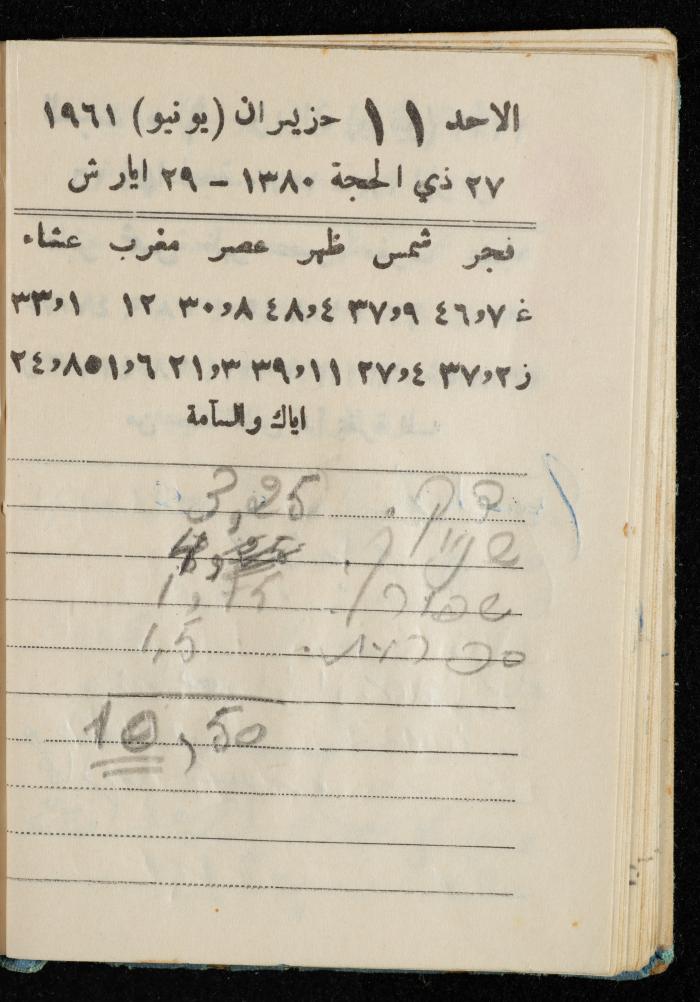 الاحد ١١ حزيران (يونيو) ١٩٦١
٢٧ ذي الحجة ١٣٨٠ – ٢٩ ايار ش
فجر شمس ظهر عصر مغرب عشاء
غ ٧و٤٦ ٩و٣٧ ٤و٤٨ ٨و٣٠ ١٢ ١و٣٣
ز ٢و٣٧ ٤و٢٧ ١١و٣٩ ٣و٢١ ٦و٥١ ٨و٢٤
اياك والسآمة
3,25
1,75
1,5
10,50